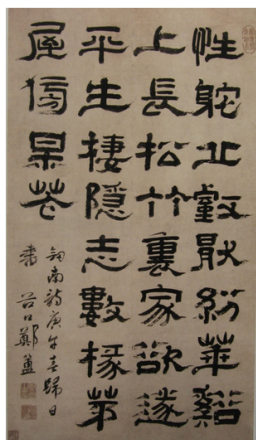 性躭丘壑厭紛華谿
上長松竹裏家欲遂
平生棲隱志數椽茅
屋傍花
南庚午春歸日
書 谷口鄭簠